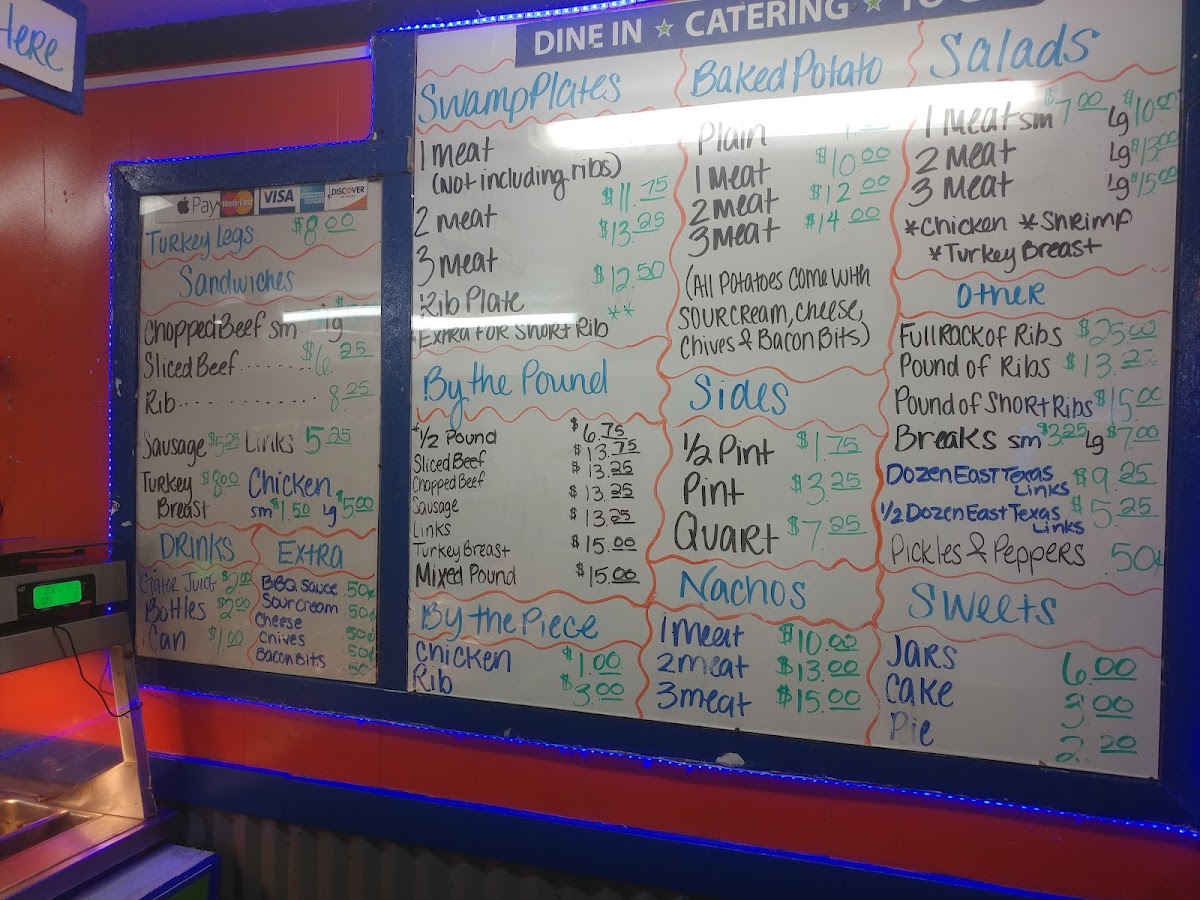 Here
DINE IN ★ CATERING ★
Pay MasterCard VISA DISCOVER
Turkey Legs $8.00
Sandwiches
Chopped Beef sm lg $
Sliced Beef ........ $6.25
Rib ............... 8.25
Sausage $5.25 Links 5.25
Turkey Breast $8.00
Chicken
sm $1.50 lg $5.00
Drinks
Gator Juice $2.00
Bottles $2.00
Can $1.00
Extra
BBQ Sauce .50¢
Sour cream .50¢
Cheese .50¢
Chives .50¢
Bacon Bits .50
Swamp Plates
1 meat
(Not including ribs) $11.75
2 meat $13.25
3 meat $12.50
Rib Plate **
*Extra for Short Rib
By the Pound
*1/2 Pound $6.75
Sliced Beef $13.75
Chopped Beef $13.25
Sausage $13.25
Links $13.25
Turkey Breast $15.00
Mixed Pound $15.00
By the Piece
Chicken $1.00
Rib $3.00
Baked Potato
Plain
1 meat $10.00
2 meat $12.00
3 meat $14.00
(All Potatoes come with
sour cream, cheese,
chives & Bacon Bits)
Sides
1/2 Pint $1.75
Pint $3.25
Quart $7.25
Nachos
1 meat $10.00
2 meat $13.00
3 meat $15.00
Salads
1 meat sm $7.00 lg $10.00
2 meat lg $13.00
3 meat lg $15.00
*Chicken *Shrimp
*Turkey Breast
Other
Full rack of Ribs $25.00
Pound of Ribs $13.25
Pound of Short Ribs $15.00
Breaks sm $3.25 lg $7.00
Dozen East Texas
Links $9.25
1/2 Dozen East Texas
Links $5.25
Pickles & Peppers .50¢
Sweets
Jars 6.00
Cake 3.00
Pie 2.20